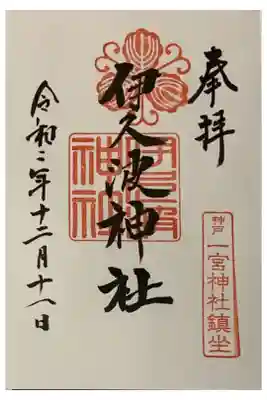 奉拝
伊久波神社
伊久波神社
神戸
一宮神社鎮坐
令和二年十二月十八日